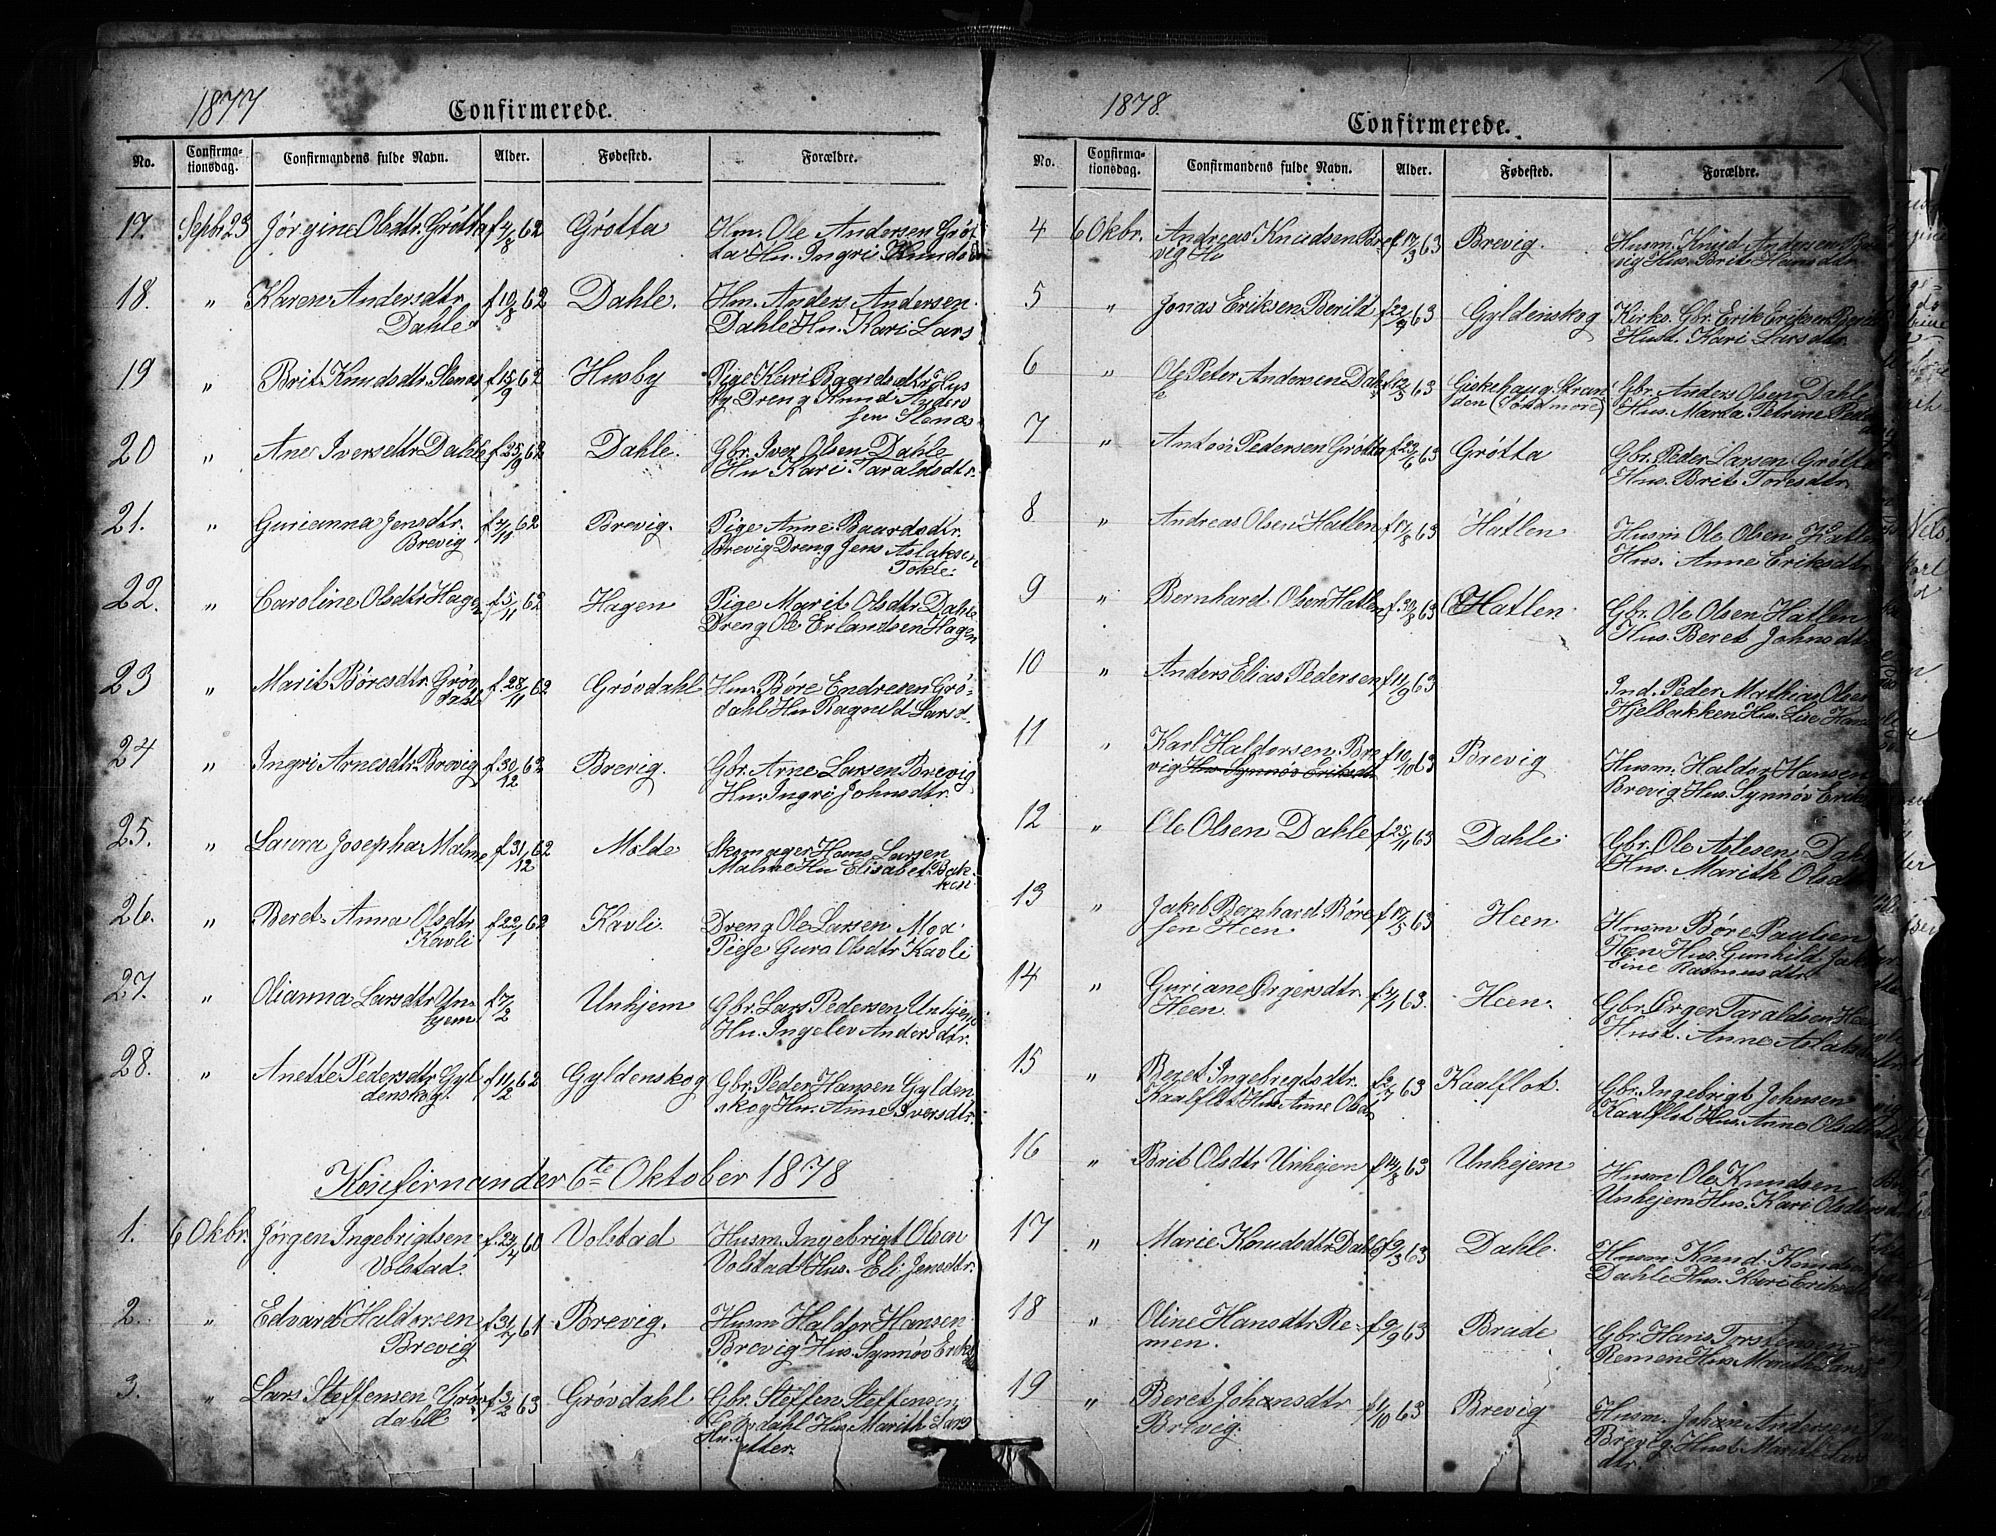 1877 Confirmerede.
No. Confirmationsdag. Confirmandens fulde Navn. Alder. Fødested. Forældre.
17. Septbr 23 Jørgine Olsdtr. Grøtta f 4/8 62 Grøtta Hm. Ole Andersen Grøt
ta Hu. Ingri Knuds
18. " Karen Andersdtr. f 19/8 62 Dahle. Hm. Anders Andersen
Dahle Dahle Hu. Kari Lars
19 " Brit Knudsdtr. Stenøs f 15/9 62 Husby Pige Kari Baardsdtr. Hus
by Dreng Knud Anders
sen Stenøs
20 " Ane Iversdtr Dahle f 25/9 62 Dahle. Gbr. Iver Olsen Dahle
Hu Kari Taraldsdtr.
21. " Gurianna Jensdtr. f 4/11 62 Brevig. Pige Anne Baardsdtr.
Brevig Brevig Dreng Jens Aslaksen
Tokle
22. " Caroline Olsdtr Hagen f. 5/11 62 Hagen Pige Marit Olsdtr. Dahle
Dreng Ole Erlandsen Hagen
23 " Marit Børesdtr. Grøv f. 28/11 62 Grøvdahl Hm. Børe Endresen Grø-
dahl dahl Hu Ragnild Larsd.
24 " Ingri Arnesdtr. Brevig f. 30/12 62 Brevig. Gbr. Arne Larsen Brevig
Hu. Ingri Johnsdtr.
25. " Laura Josepha Malme f. 31/12 62 Molde Skomager Hans Larsen
Malme Hu Elisabet Bak-
ken
26. " Beret Anna Olsdtr f 22/1 62 Kavli. Dreng Ole Larsen Moa
Kavli Piege Guro Olsdtr Kavli
27. " Olianna Larsdtr Un- f 7/2 Unhjem Gbr. Lars Pedersen Unhjem
hjem Hu. Ingelev Andersdtr.
28. " Anette Pedersdtr Gyl f 11/2 62 Gyldenskog Gbr. Peder Hansen Gylden
denskog. skog Hu. Anne Iversdtr.
Konfirmander 6te Oktober 1878
1. 6 Okbr. Jørgen Ingebrigtsen f. 24/4 60 Volstad Husm. Ingebrigt Olsen
Volstad. Volstad Hus. Eli Jensdtr.
2. " Edvard Haldorsen f 31/7 61 Brevig. Husm Haldor Hansen
Brevig Brevig Hus. Synnøv Eriks
3. " Lars Steffensen Grøv f 3/2 63 Grøvdahl Gbr. Steffen Steffensen
dahl Grøvdahl Hus. Marith Lars
datter.
1878. Confirmerede.
No. Confirmationsdag. Confirmandens fulde Navn. Alder. Fødested. Forældre.
4 6 Okbr. Andreas Knudsen Bre f 17/3 63 Brevig. Husm. Knud Andersen Bre
vig vig Hus. Brit Hansdtr.
5 " Jonas Eriksen Berild f 22/4 63 Gyldenskog Kirks. Gbr. Erik Eriksen
Hust. Kari Larsdtr.
6 " Ole Peter Andersen Dahl f 12/5 63 Giskehaug Stran Gbr. Anders Olsen Dahle
e den (Söndmöre) Hus. Marta Petrine
7 " Anton Pedersen Grøtta f 23/6 63 Grøtta Gbr. Peder Larsen Grøtta
Hus. Brit Toresdtr.
8 " Andreas Olsen Hatlen f 17/8 63 Hatlen Husm Ole Olsen Hatlen
Hus. Anne Eriksdtr
9 " Bernhard Olsen Hatlen f 30/8 63 Hatlen. Gbr. Ole Olsen Hatlen
Hus. Beret Johnsdtr
10 " Anders Elias Pedersen f 11/9 63 Ind. Peder Mathias Olsen
Hjelbakken Hus. Lise
11 " Karl Haldorsen Bre f 10/10 63 Brevig Husm. Haldor Hansen
vig Hus Synnøv Eriksdt Brevig Hus. Synnøv Eriks
12 " Ole Olsen Dahle f 25/11 63 Dahle Gbr. Ole Aslesen Dahl
Hus. Marith Olsdt
13 " Jakob Bernhard Børe f 17/5 63 Heen Husm Børe Paulsen
sen Heen. Hen Hus. Gunhild Jako
bine Rasmusdtr
14 " Guriane Ørgersdtr. f. 2/1 63. Heen. Gbr Ørger Taraldsen Heen
Heen. Hust. Anne Aslaks
15 " Beret Ingebrigtsdtr. f 2/7 63 Kaalflot. Gbr. Ingebrigt Johnsen
Kaalflot Hus. Anne Olsd Kaalflot Hus. Anne Olsdt
16 " Brit Olsdtr Unhejem f 14/8 63 Unhejem Husm Ole Knudsen
Unhejem Hus. Kari Olsdtr
17 " Marie Knudsdtr Dahl f 9/3 63 Dahle. Husm Knud Knudsen
Dahle Hus. Kari Eriksd
18 " Oline Hansdtr Re- f 9/9 63 Brude Gbr. Hans Torstensen
men. Remen Hus. Marith Lars
19 " Beret Johansdtr f 1/10 63 Brevig Husm. Johan Andersen
Brevig. Brevig Hust. Marith Lars
dtr.